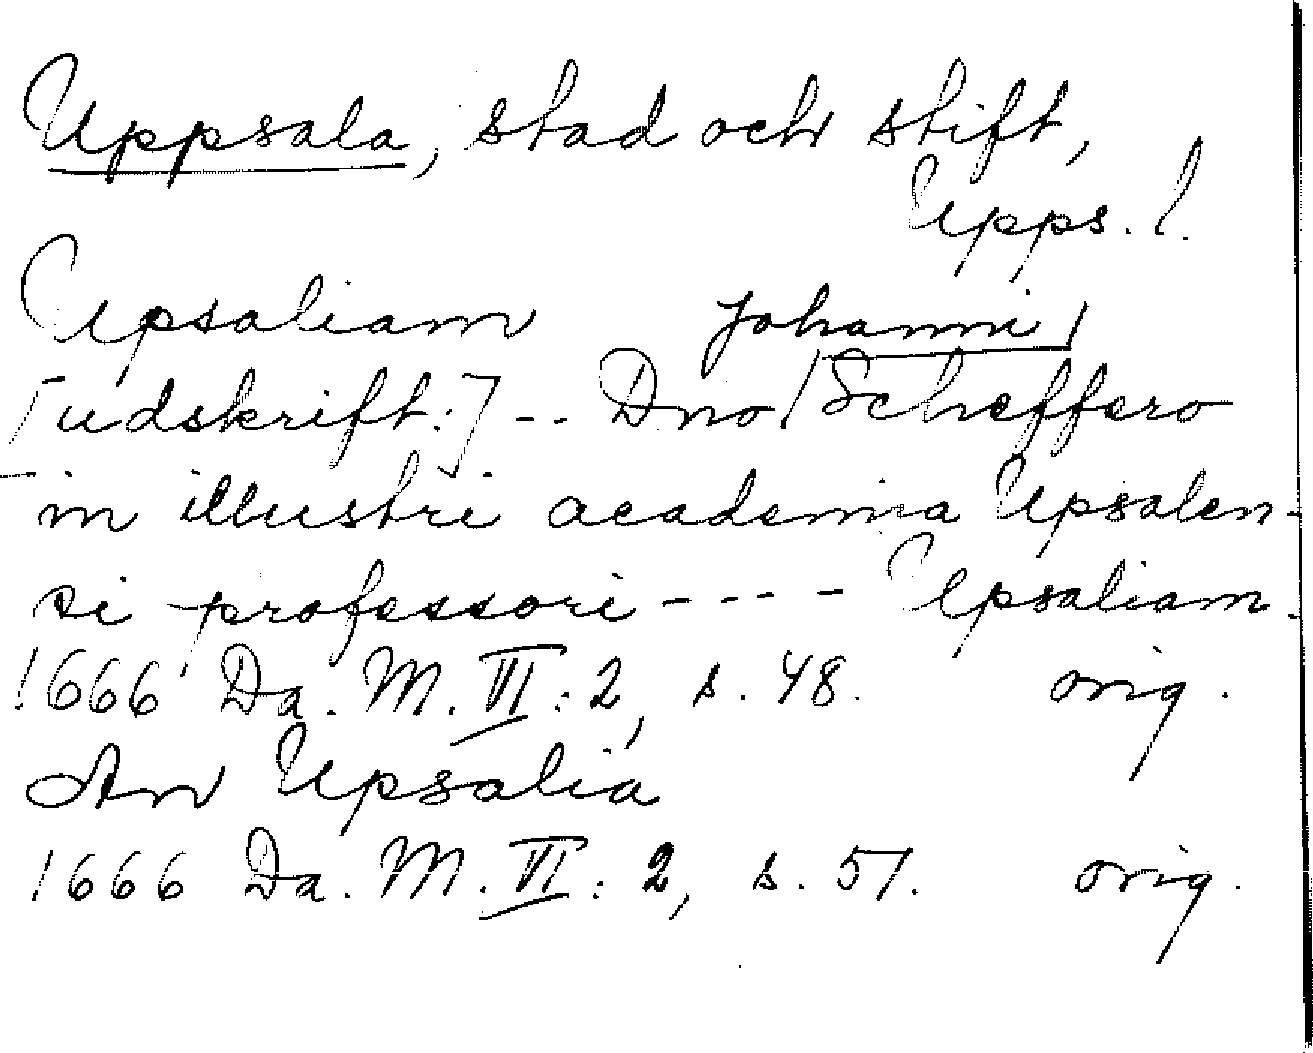 Uppsala, stad och stift,
Upps. l.
Upsaliam
[udskrift:] -- Dno Johanni Scheffero
in illustri academia Upsalen-
si professori ---- Upsaliam.
1666 Da. M. VI: 2, s. 48. orig.
An Upsalia
1666 Da. M. VI: 2, s. 51. orig.